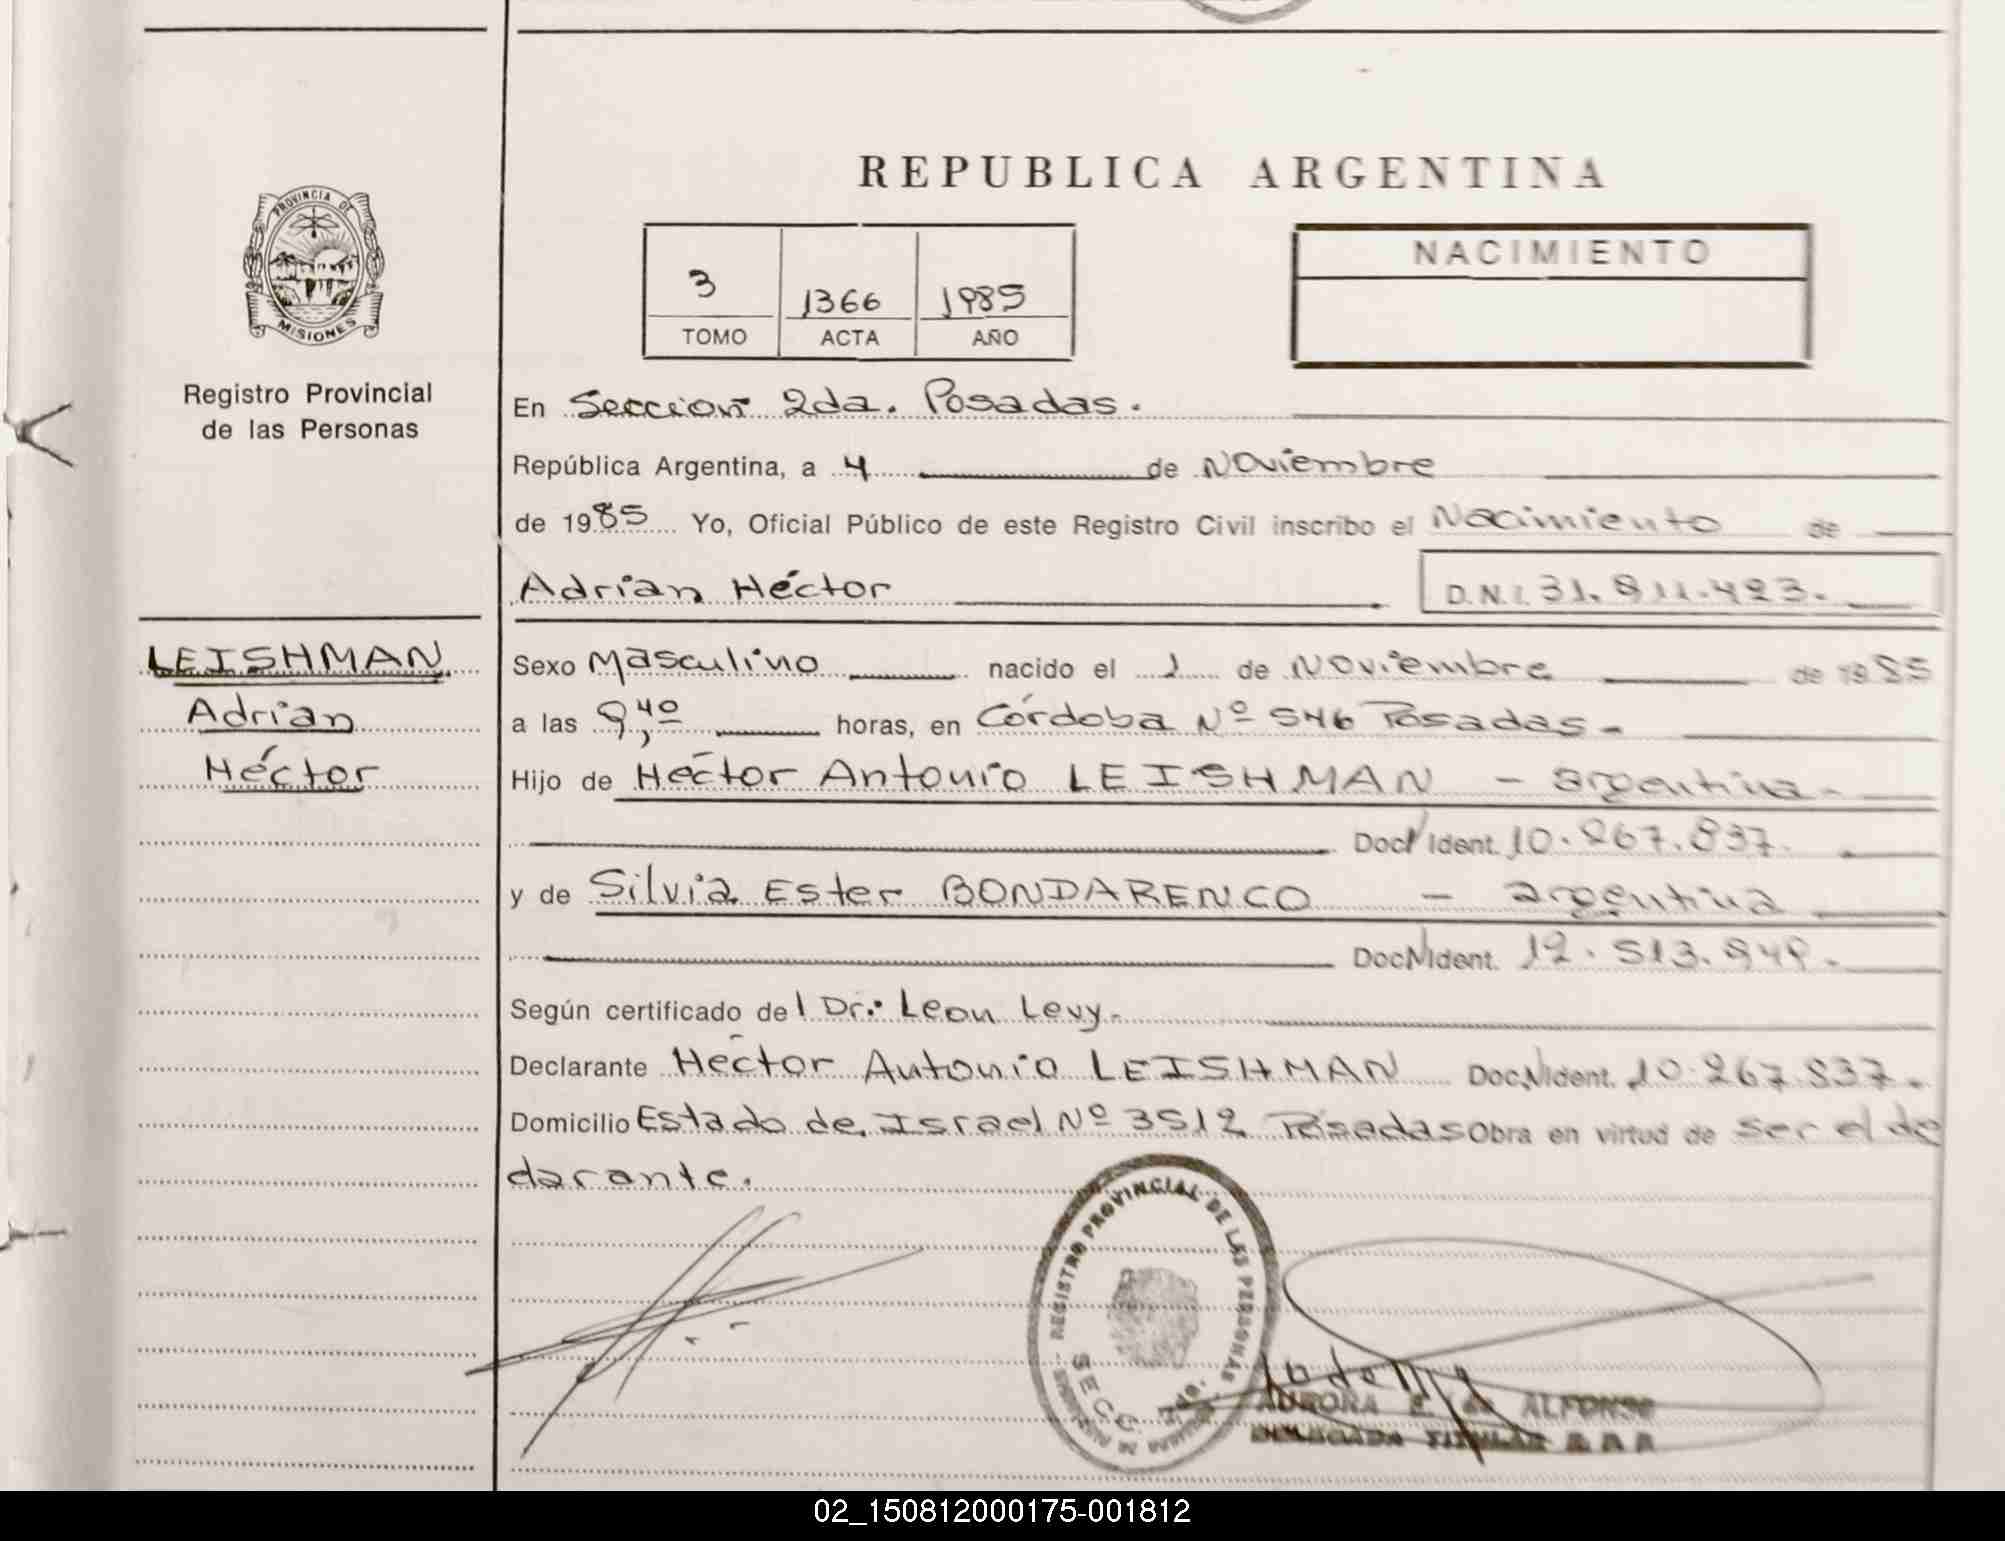 REPUBLICA ARGENTINA
PROVINCIA DE MISIONES
Registro Provincial
de las Personas
3 1366 1985
TOMO ACTA AÑO
NACIMIENTO
En Seccion 2da. Posadas.
República Argentina, a 4 de Noviembre
de 1985 Yo, Oficial Público de este Registro Civil inscribo el Nacimiento de
Adrian Héctor D.N.I. 31.811.423.
LEISHMAN
Adrian
Héctor
Sexo Masculino nacido el 1 de Noviembre de 1985
a las 9,40 horas, en Córdoba Nº 546 Posadas.
Hijo de Héctor Antonio LEISHMAN - argentina.
Doc. Ident. 10.267.837.
y de Silvia Ester BONDARENCO - argentina
Doc N Ident. 12.513.
Según certificado del Dr. Leon Levy.
Declarante Héctor Antonio LEISHMAN Doc. N Ident. 10.267.837.
Domicilio Estado de Israel Nº 3512 Posadas Obra en virtud de ser el de
clarante.
REGISTRO PROVINCIAL DE LAS PERSONAS
SECC. 2da.
AURORA E. de ALFONSO
DELEGADA TITULAR
02_150812000175-001812